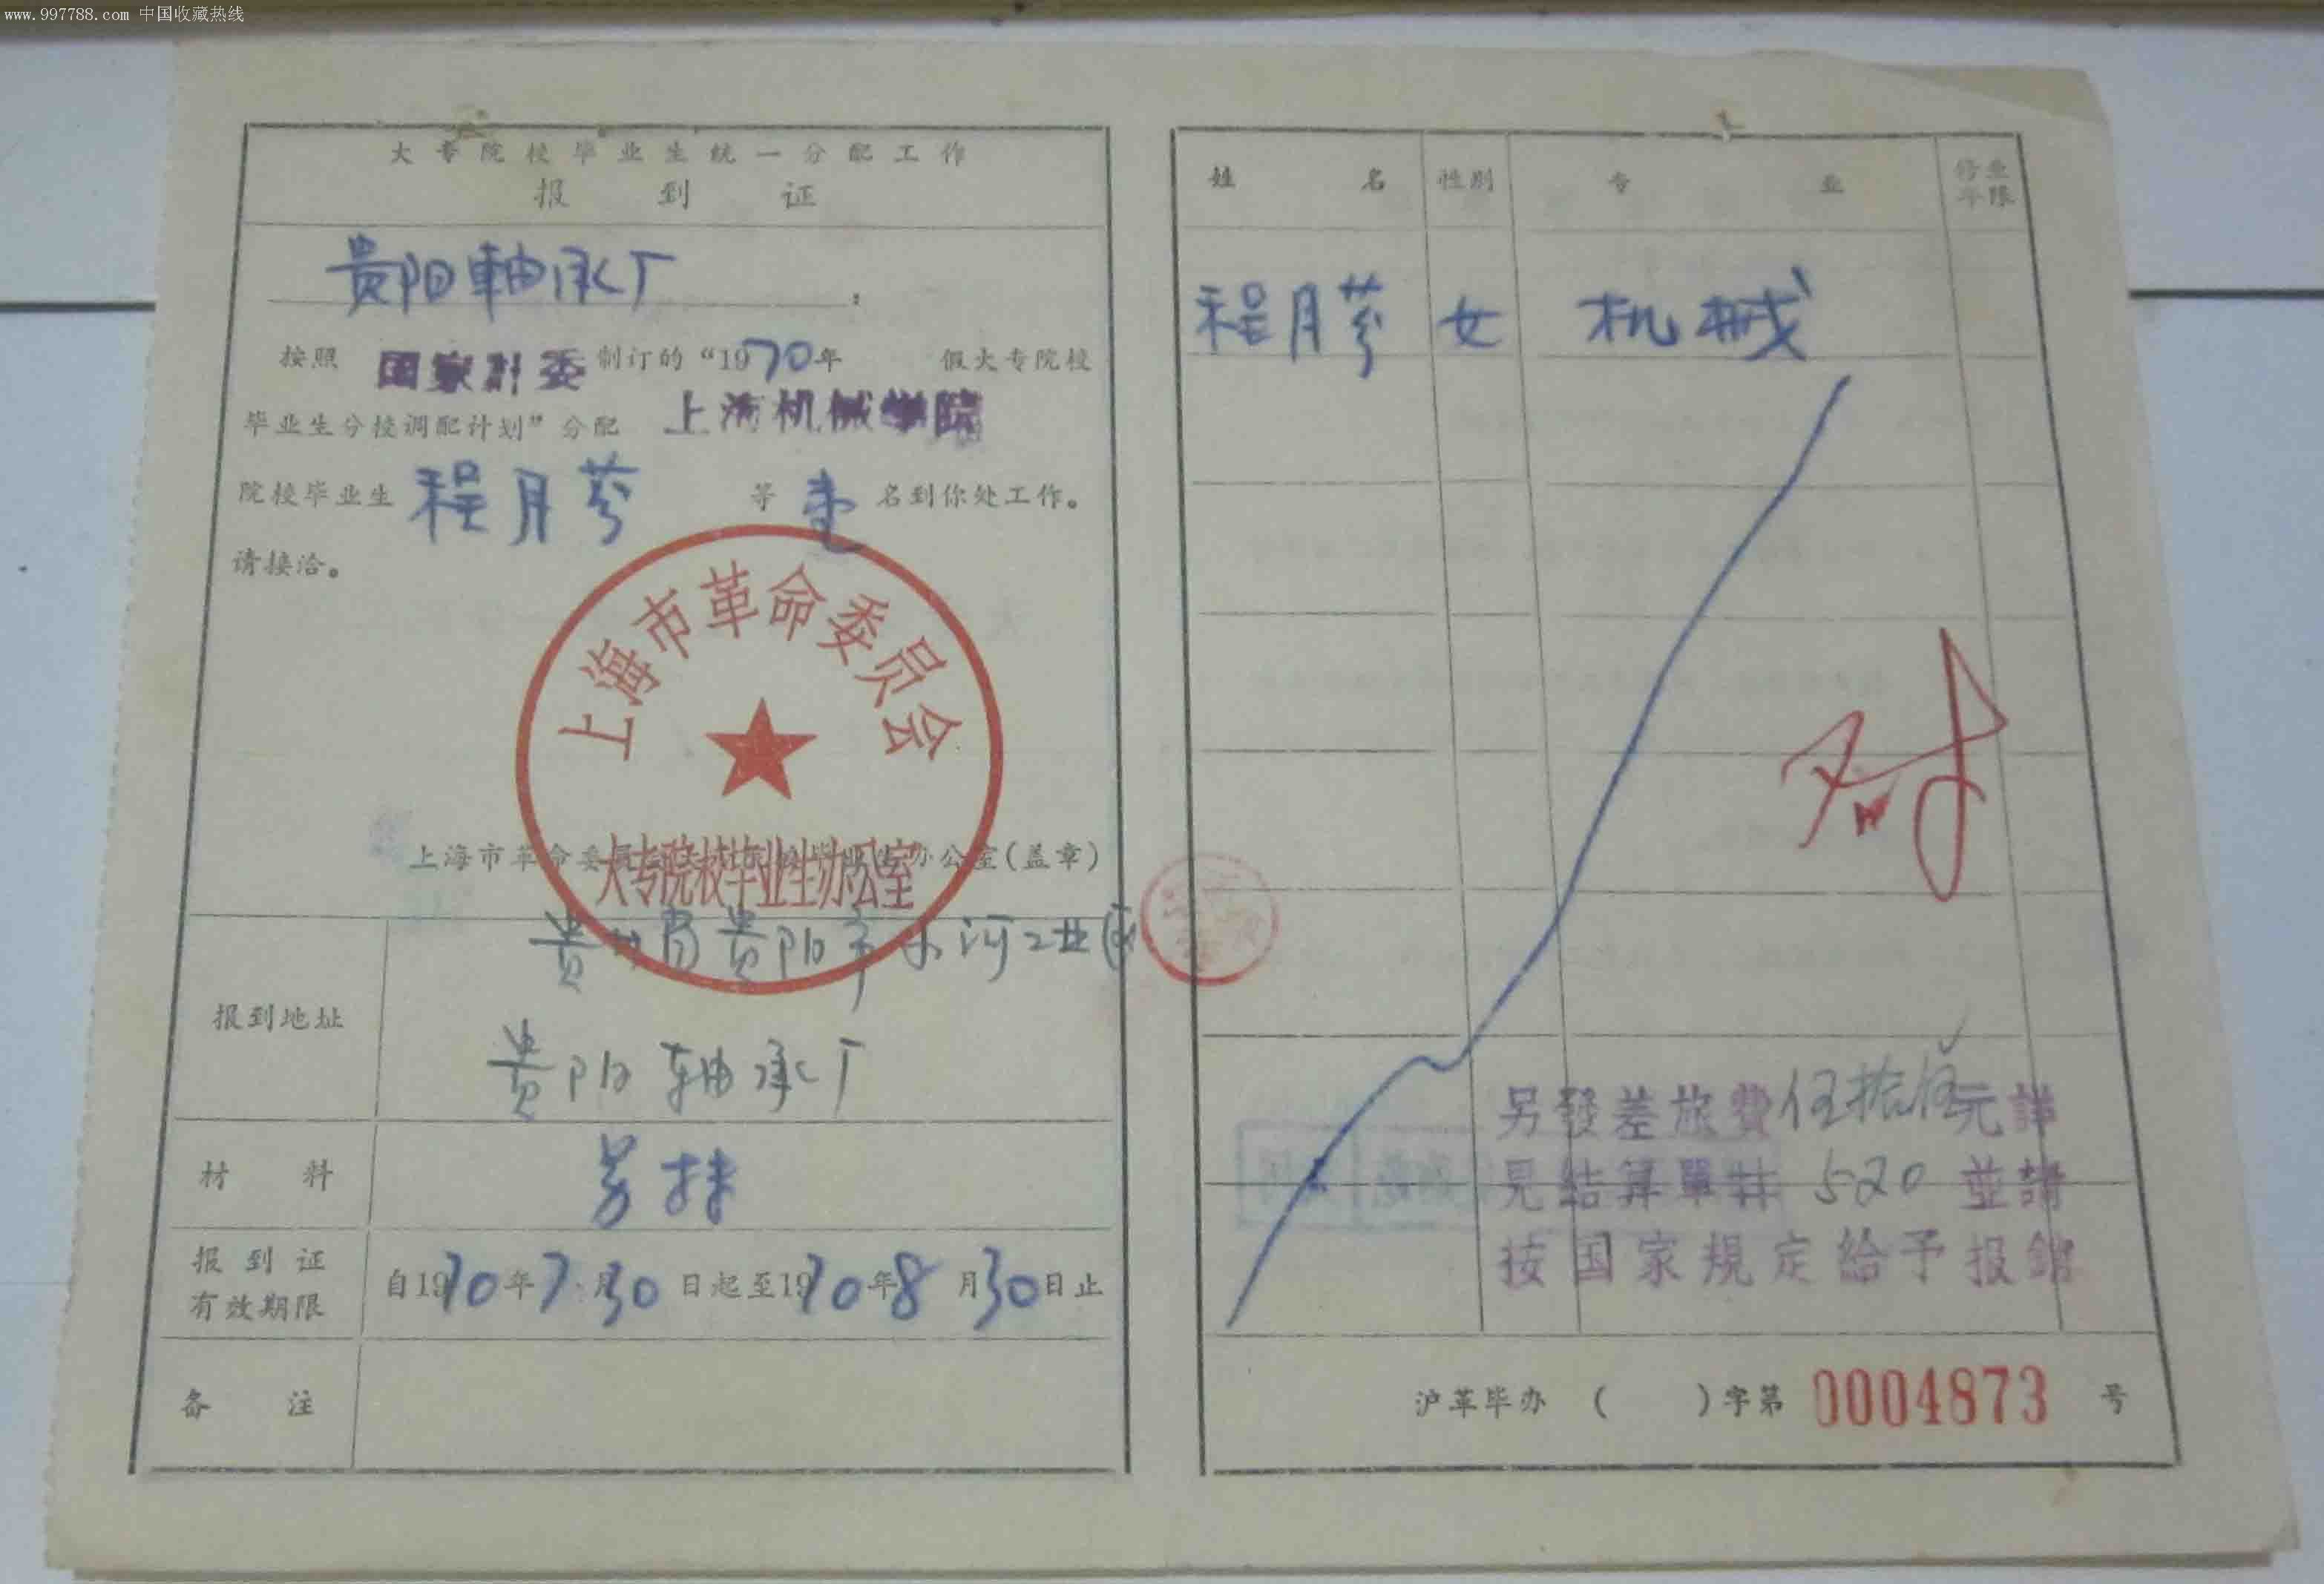 www.997788.com 中国收藏热线
大专院校毕业生统一分配工作
报到证
贵阳軸承厂：
按照 国家計委 制订的“1970年 假大专院校
毕业生分校调配计划”分配 上海机械学院
院校毕业生 程月芬 等 壹 名到你处工作。
请接洽。
上海市革命委员会
大专院校毕业生办公室
上海市革命委员会大专院校毕业生办公室(盖章)
报到地址
贵州省贵阳市小河工业区
贵阳轴承厂
材料
另挂
报到证
有效期限
自1970年7月30日起至1970年8月30日止
备注
姓名 性别 专业 修业年限
程月芬 女 机械
另發差旅費伍拾伍元詳
見結算單 520 並請
按国家規定給予报銷
沪革毕办 ( )字第 0004873 号